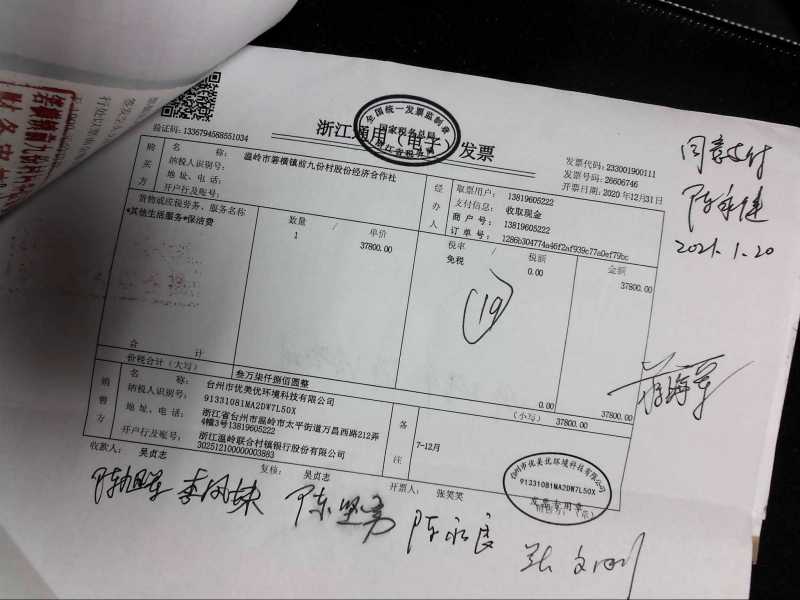 浙江通用（电子）发票
全国统一发票监制章
国家税务总局
浙江省税务局
验证码: 133679458855​1034
发票代码: 233001900111
发票号码: 26606746
开票日期: 2020 年12月31日
购买方
名 称: 温岭市箬横镇前九份村股份经济合作社
纳税人识别号:
地 址、电 话:
开户行及账号:
经办人
取票用户: 13819605222
支付信息: 收取现金
商 户 号: 13819605222
订 单 号: 1286b304774a46f2af939c77a0ef79bc
货物或应税劳务、服务名称 数量 / 单价 税率 / 税额 金额
*其他生活服务*保洁费 1 37800.00 免税 0.00 37800.00
合 计 0.00 37800.00
价税合计（大写） 叁万柒仟捌佰圆整 （小写） 37800.00
销售方
名 称: 台州市优美优环境科技有限公司
纳税人识别号: 91331081MA2DW7L50X
地 址、电 话: 浙江省台州市温岭市太平街道万昌西路212弄
4幢3号13819605222
开户行及账号: 浙江温岭联合村镇银行股份有限公司
302512100000003883
备注
7-12月
收款人: 吴贞志 复核: 吴贞志 开票人: 张笑笑
台州市优美优环境科技有限公司
91331081MA2DW7L50X
发票专用章
同意支付
2021.1.20
19
陈坚勇
陈永良
张文刚